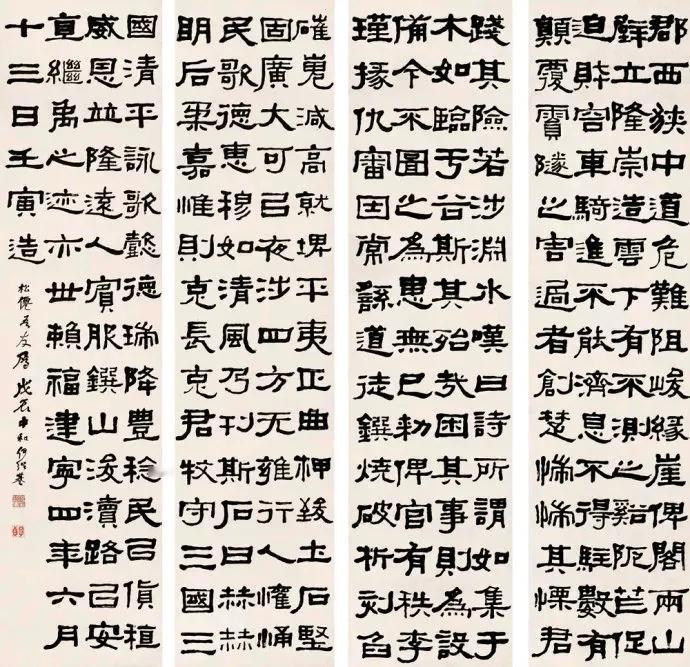 郡西狹中道危難阻峻緣崖俾閣兩山
壁立隆崇造雲下有不測之谿阨芒促
迫財容車騎進不能濟息不得駐數有
顛覆霣隧之害過者創楚惴惴其慄君
踐其險若涉淵冰嘆曰詩所謂如集于
木如臨于谷斯其殆哉困其事則為設
備今不圖之為患無已勑俾官有秩李
瑾掾仇審因常繇道徒鐉燒破析刻臽
磪嵬減高就埤平夷正曲柙致土石堅
固廣大可以夜涉四方无雍行人懽悀
民歌德惠穆如清風乃刊斯石曰赫赫
明后柔嘉惟則克長克君牧守三國三
國清平詠歌懿德瑞降豐稔民以貨稙
威恩並隆遠人賓服鐉山浚瀆路以安
直繼禹之迹亦世賴福建寧四年六月
十三日壬寅造
松僊 友屬 戊辰中和何紹基